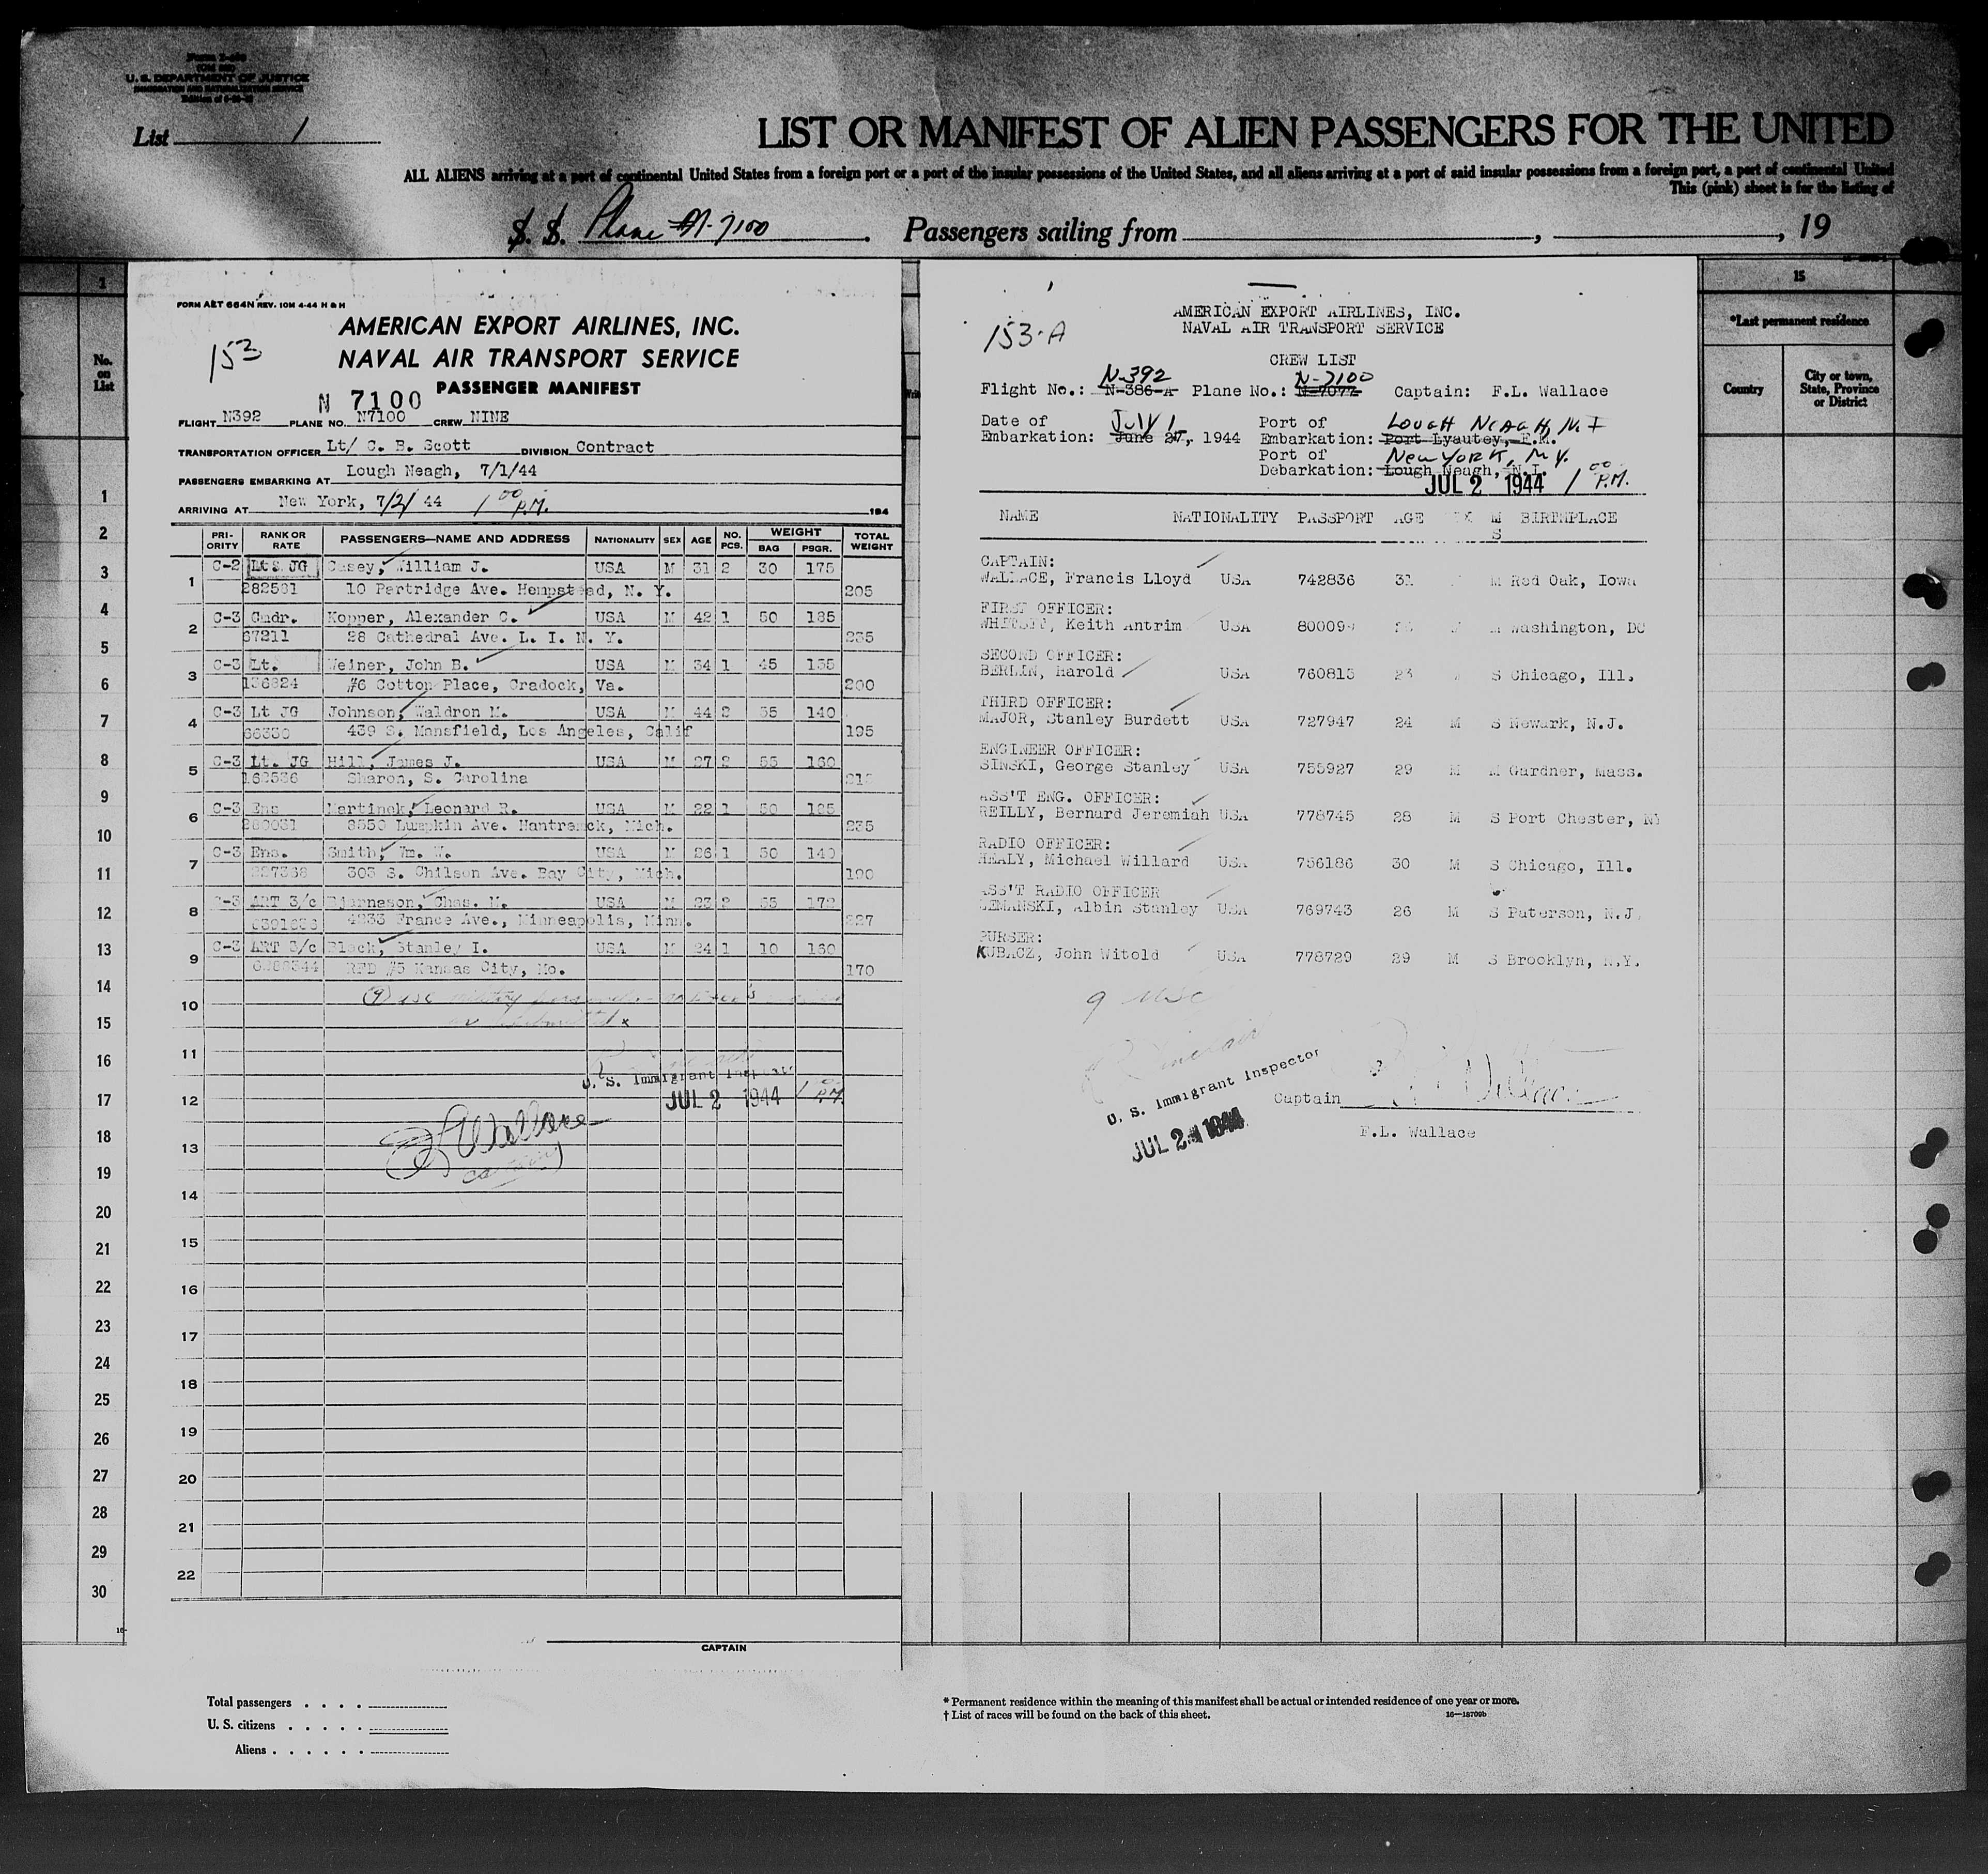 U. S. DEPARTMENT OF JUSTICE
List 1
LIST OR MANIFEST OF ALIEN PASSENGERS FOR THE UNITED
ALL ALIENS arriving at a port of continental United States from a foreign port or a port of the insular possessions of the United States, and all aliens arriving at a port of said insular possessions from a foreign port, a part of continental United
This (pink) sheet is for the listing of
S. S. Plane N-7100 . Passengers sailing from , , 19
No. on List
1
2
3
4
5
6
7
8
9
10
11
12
13
14
15
16
17
18
19
20
21
22
23
24
25
26
27
28
29
30
FORM AET 664N REV. 10M 4-44 H & H
153
AMERICAN EXPORT AIRLINES, INC.
NAVAL AIR TRANSPORT SERVICE
N 7100 PASSENGER MANIFEST
FLIGHT N392 PLANE NO. N7100 CREW NINE
TRANSPORTATION OFFICER Lt/ C. B. Scott DIVISION Contract
PASSENGERS EMBARKING AT Lough Neagh, 7/1/44
ARRIVING AT New York, 7/2/ 44 1 00 P.M. 194
PRIORITY RANK OR RATE PASSENGERS—NAME AND ADDRESS NATIONALITY SEX AGE NO. PCS. WEIGHT BAG PSGR. TOTAL WEIGHT
1 C-2 Lt JG Casey, William J. USA M 31 2 30 175
282581 10 Partridge Ave. Hempstead, N. Y. 205
2 C-3 Cmdr. Kopper, Alexander C. USA M 42 1 50 185
67211 28 Cathedral Ave. L. I. N. Y. 235
3 C-3 Lt. Weiner, John B. USA M 34 1 45 155
136824 #6 Cotton Place, Cradock, Va. 200
4 C-3 Lt JG Johnson, Waldron M. USA M 44 2 55 140
439 S. Mansfield, Los Angeles, Calif 195
5 C-3 Lt. JG Hill, James J. USA M 27 2 55 160
Sharon, S. Carolina
6 C-3 Ens Martinek, Leonard R. USA M 22 1 50 185
Ave. Hamtramck, Mich. 235
7 C-3 Ens. Smith, Wm. W. USA M 26 1 50 140
303 S. Chilson Ave. Bay City, Mich. 190
8 C-3 ART 3/c Bjarnason, Chas. M. USA M 23 2 55 172
4233 France Ave., Minneapolis, Minn. 227
9 C-3 ART 3/c Black, Stanley I. USA M 24 1 10 160
RFD #5 Kansas City, Mo. 170
10
11
U. S. Immigrant Inspector
12 JUL 2 1944 1 00 P.M.
F L Wallace
13 captain
14
15
16
17
18
19
20
21
22
CAPTAIN
153-A
AMERICAN EXPORT AIRLINES, INC.
NAVAL AIR TRANSPORT SERVICE
CREW LIST
N-392 N-7100
Flight No.: N-386-A Plane No.: N-7097 Captain: F.L. Wallace
Date of July 1 Port of LOUGH NEAGH, N. I
Embarkation: June 27, 1944 Embarkation: Port Lyautey, F.M.
Port of New York, N.Y.
Debarkation: Lough Neagh, N.I.
JUL 2 1944 1 00 P.M.
NAME NATIONALITY PASSPORT AGE SEX M S BIRTHPLACE
CAPTAIN:
WALLACE, Francis Lloyd USA 742836 31 M Red Oak, Iowa
FIRST OFFICER:
Keith Antrim USA M Washington, DC
SECOND OFFICER:
BERLIN, Harold USA 760815 23 S Chicago, Ill.
THIRD OFFICER:
MAJOR, Stanley Burdett USA 727947 24 M S Newark, N.J.
ENGINEER OFFICER:
SINSKI, George Stanley USA 755927 29 M M Gardner, Mass.
ASS'T ENG. OFFICER:
REILLY, Bernard Jeremiah USA 778745 28 M S Port Chester, NY
RADIO OFFICER:
HEALY, Michael Willard USA 756186 30 M S Chicago, Ill.
ASS'T RADIO OFFICER
LEMANSKI, Albin Stanley USA 769743 26 M S Paterson, N.J.
PURSER:
KUBACZ, John Witold USA 778729 29 M S Brooklyn, N.Y.
9 USC
U. S. Immigrant Inspector
JUL 2 1944
Captain F L Wallace
F.L. Wallace
15
*Last permanent residence
Country
City or town, State, Province or District
Total passengers . . . .
U. S. citizens . . . . .
Aliens . . . . . .
* Permanent residence within the meaning of this manifest shall be actual or intended residence of one year or more.
† List of races will be found on the back of this sheet.
16—18709b